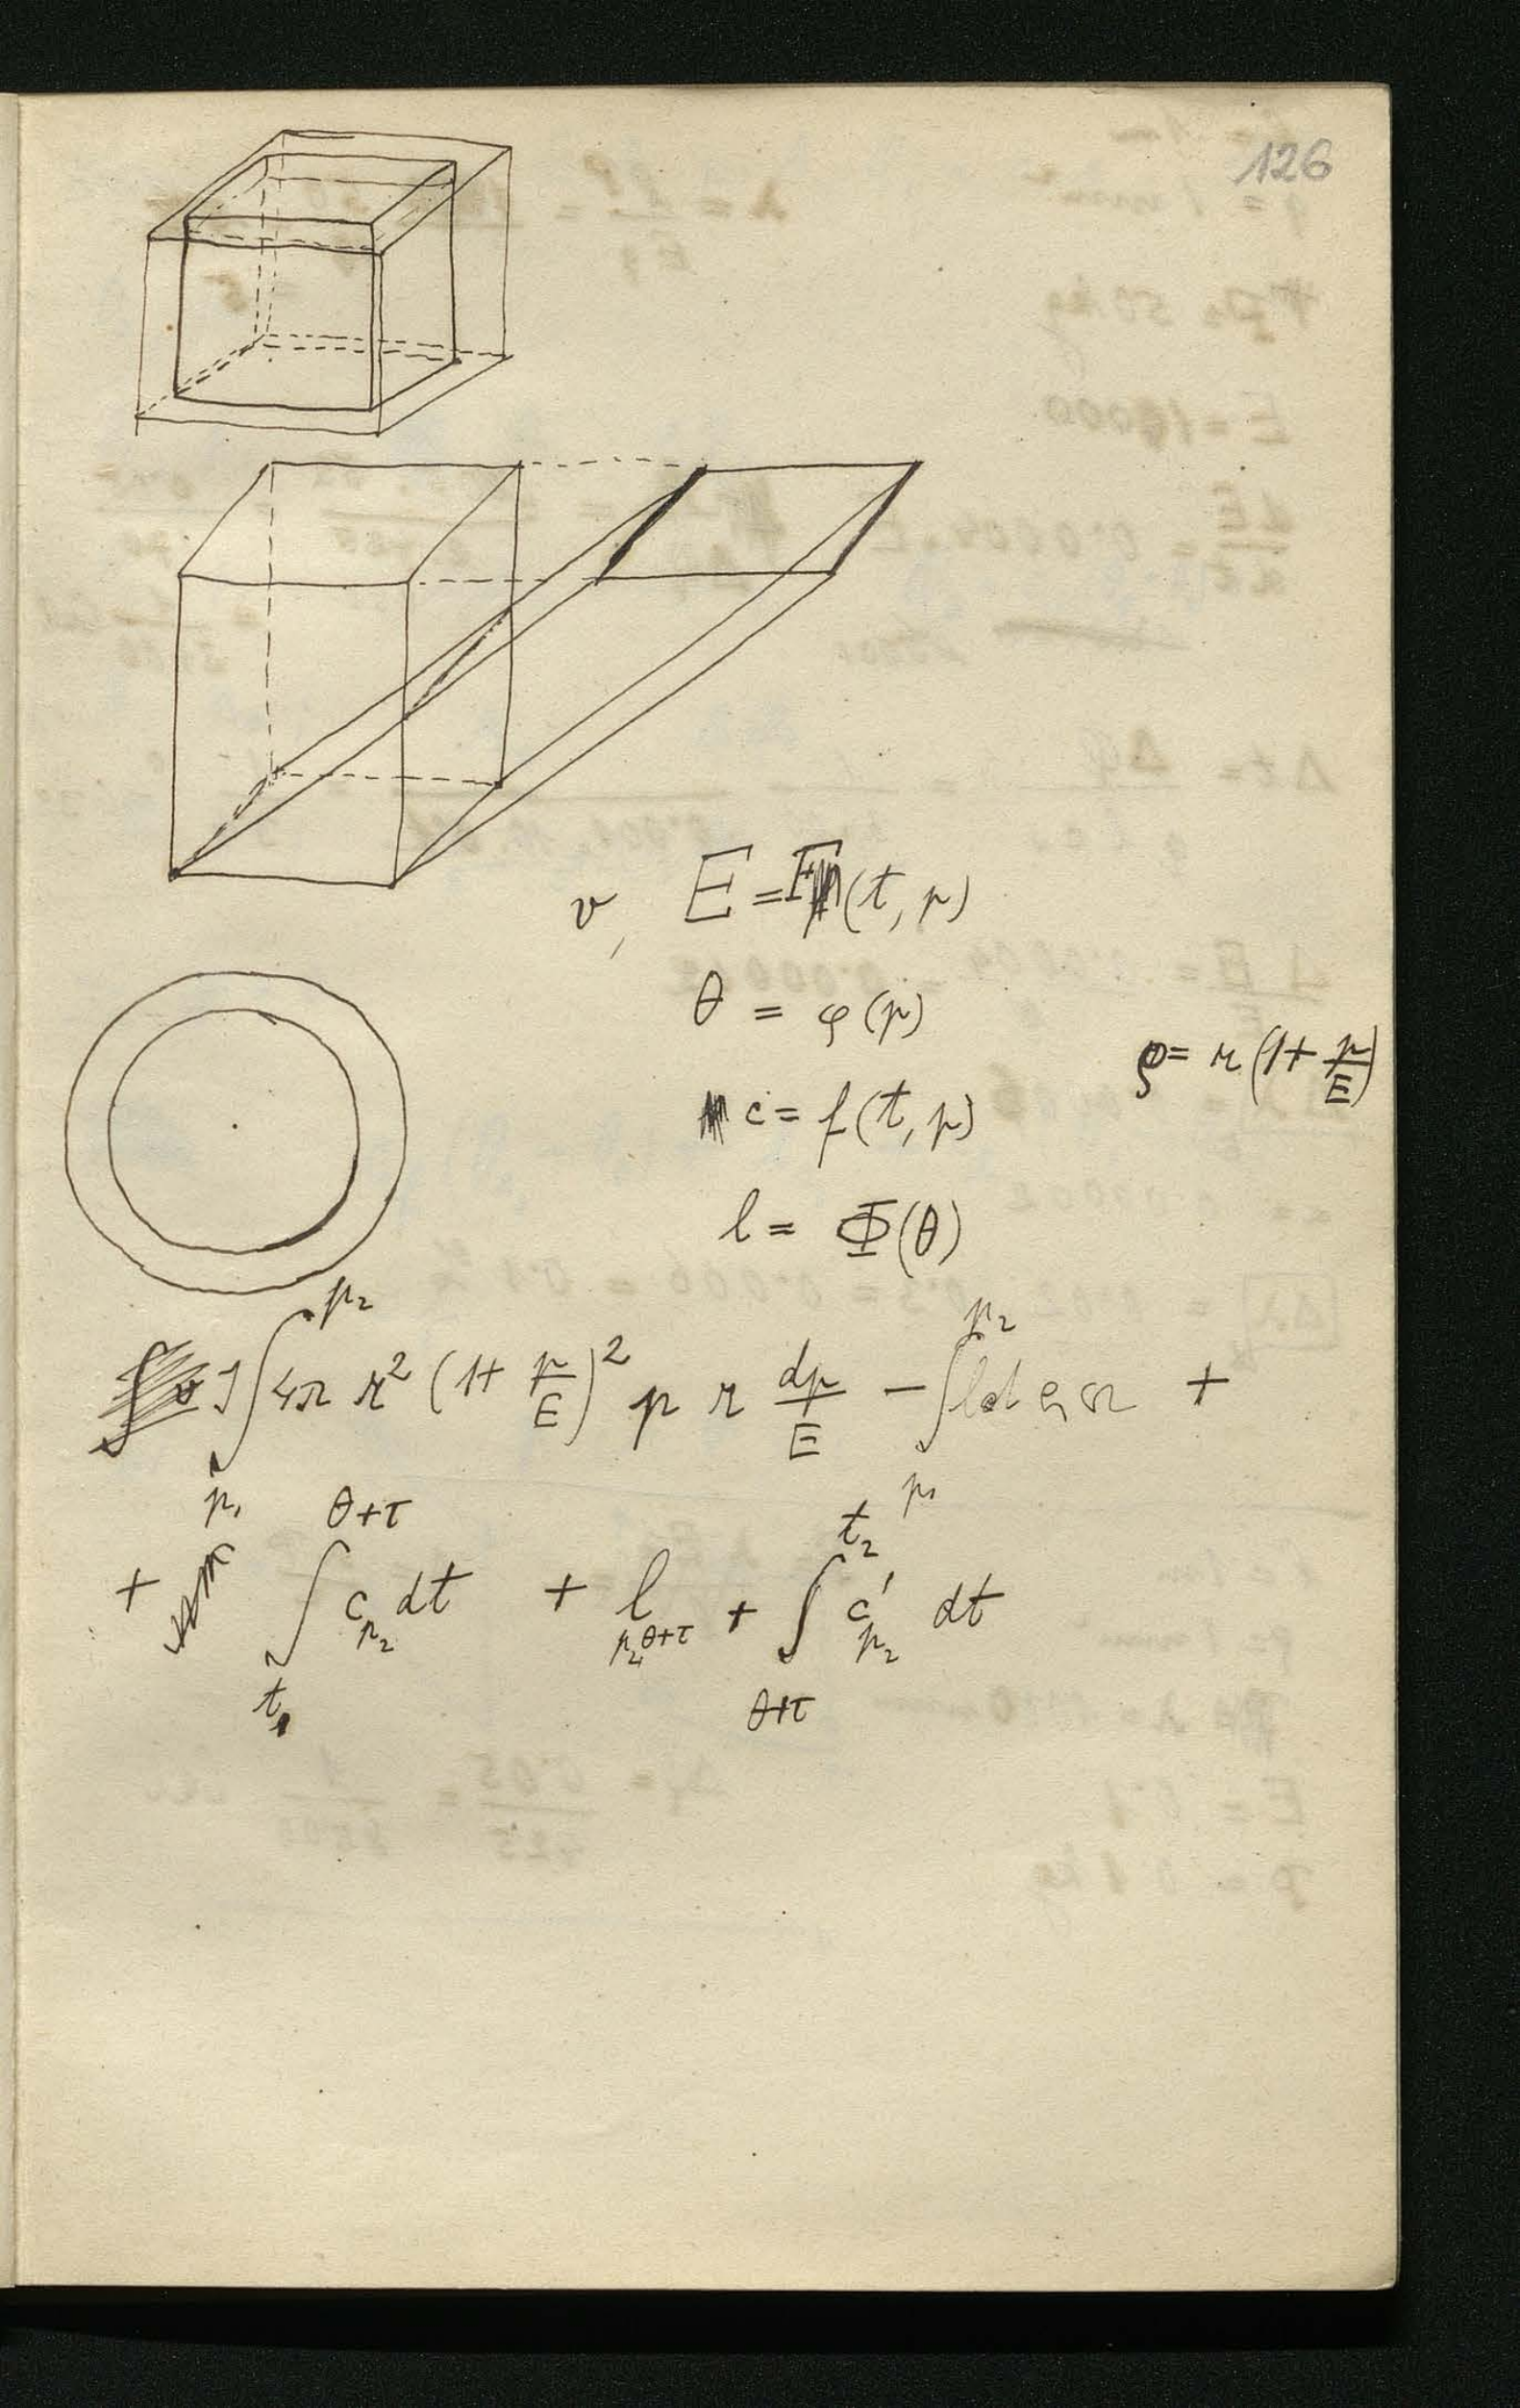 126
v, E = F(t, p)
θ = φ(p)
ρ = r(1 + p/E)
c = f(t, p)
l = Φ(θ)
J∫_{p₁}^{p₂} 4π r² (1 + p/E)² p r dp/E − ∫_{p₁}^{p₂} +
+ ∫_{t₁}^{θ+τ} c_{p₂} dt + l_{p₂, θ+τ} + ∫_{θ+τ}^{t₂} c'_{p₂} dt